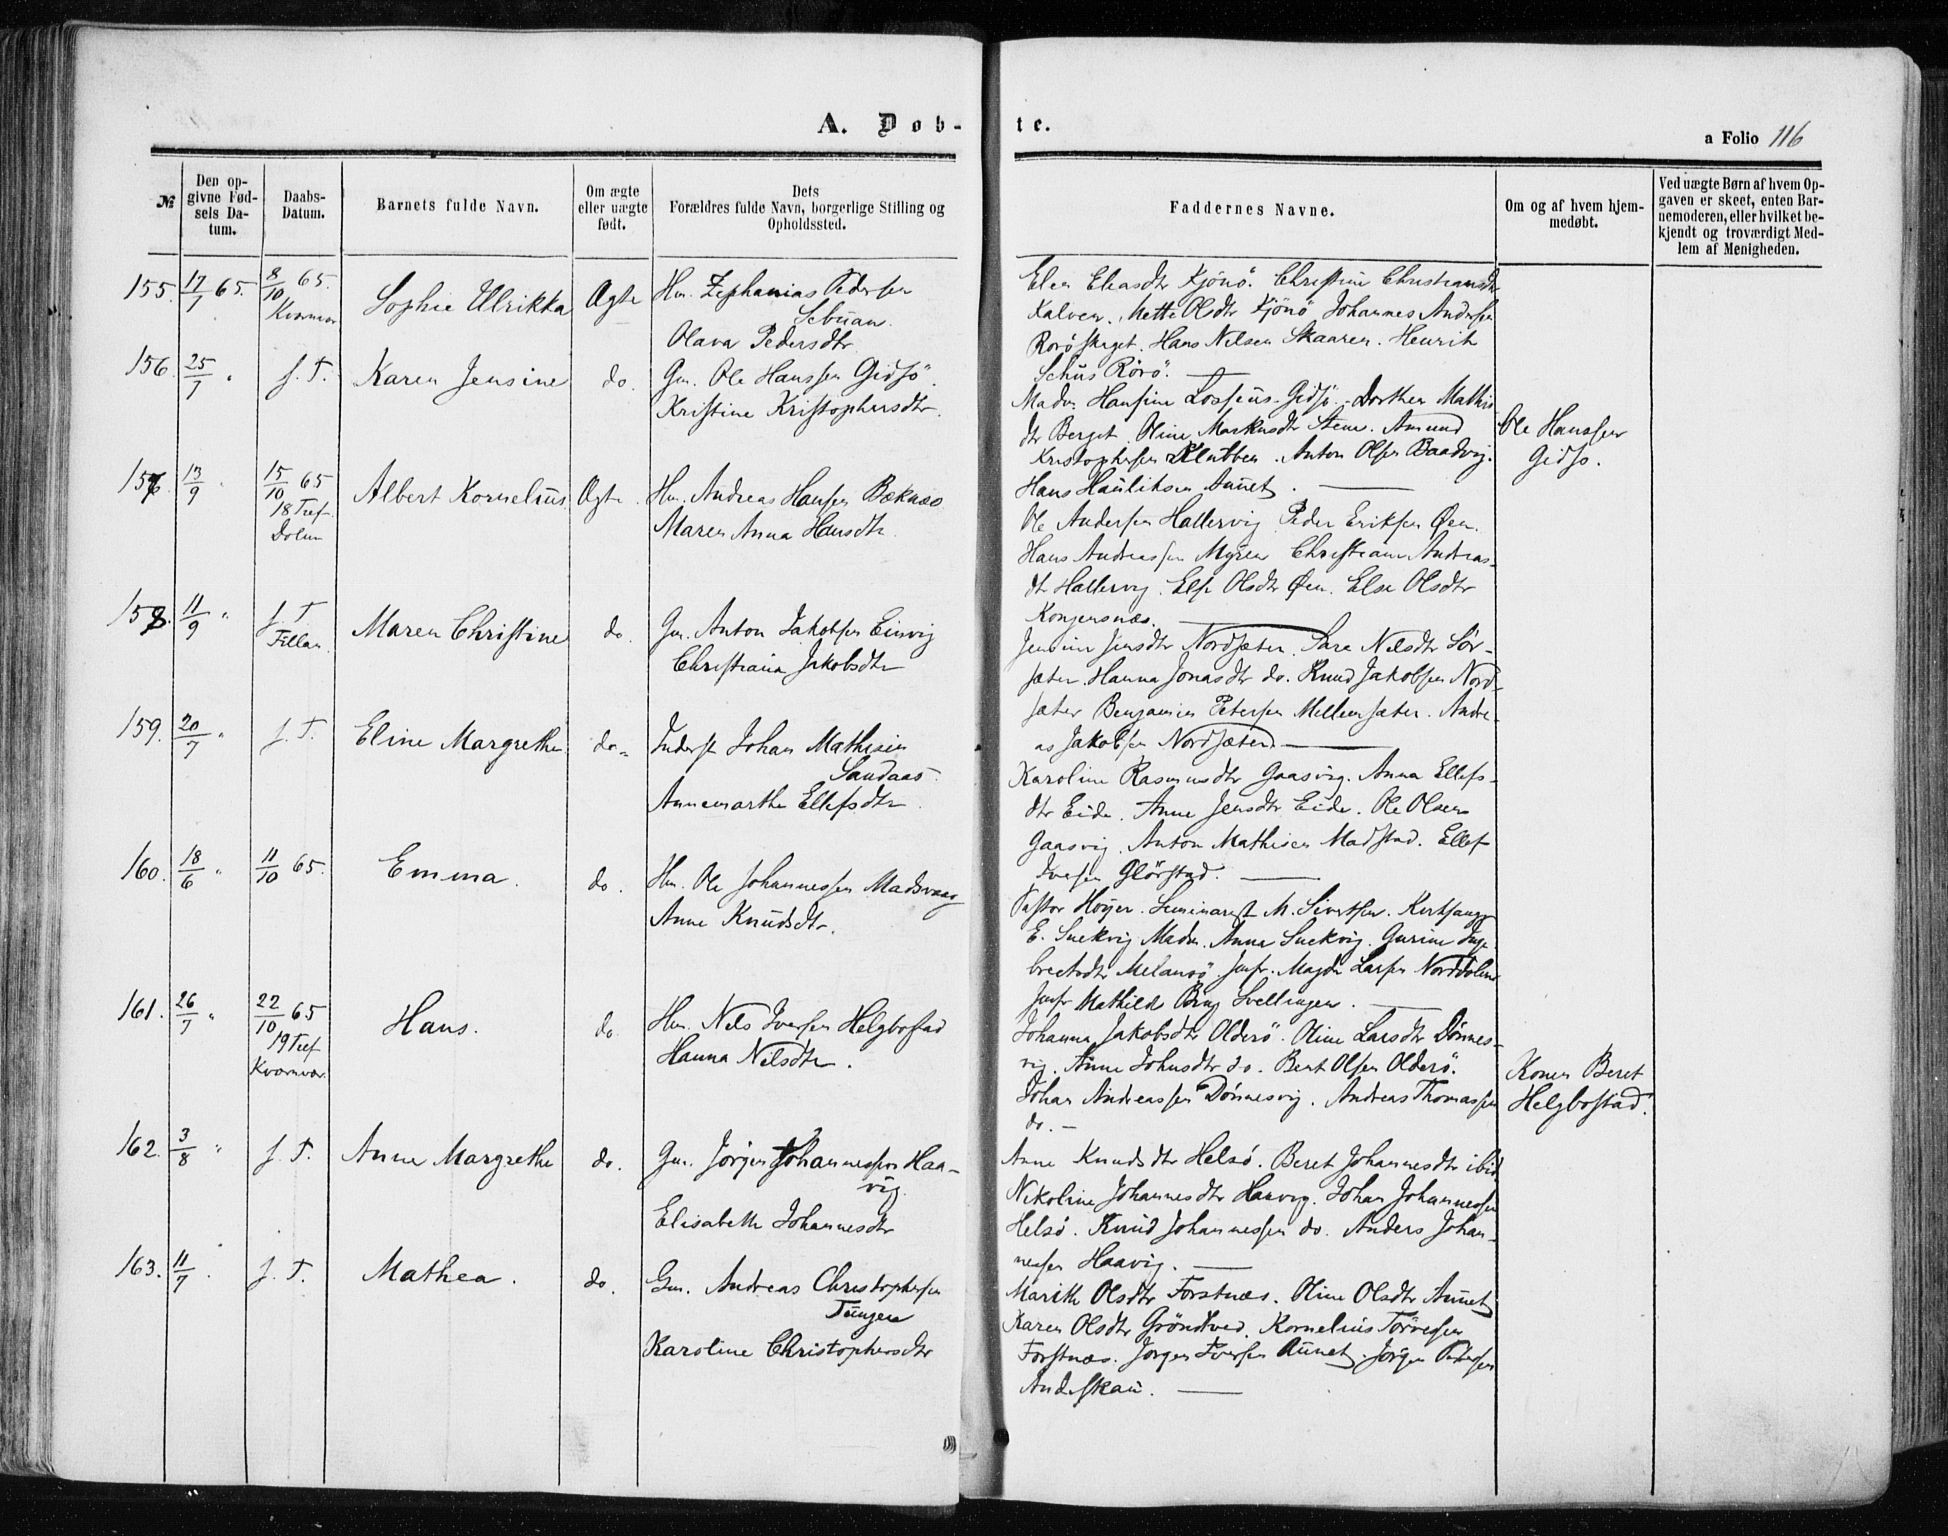 A. Döb-
te.
a Folio 116
№
Den op-
givne Fød-
sels Da-
tum.
Daabs-
Datum.
Barnets fulde Navn.
Om ægte
eller uægte
født.
Dets
Forældres fulde Navn, borgerlige Stilling og
Opholdssted.
Faddernes Navne.
Om og af hvem hjem-
medøbt.
Ved uægte Børn af hvem Op-
gaven er skeet, enten Bar-
nemoderen, eller hvilket be-
kjendt og troværdigt Med-
lem af Menigheden.
155. 17/7 65. 8/10 65. Kværnvær Sophie Ulrikka Ægte Hm. Zephanias Pedersen
Olava Pedersdtr
Elen Eliasdtr Kjönö. Christine Christiansdtr
Kalven. Mette Olsdtr Kjönö Johannes Andersen
Hans Nilsen Skaaren. Henrik
Schus Rörö.
156. 25/7 " f. T. Karen Jensine do. Gm. Ole Hanssen Gidsö.
Kristine Kristophersdtr.
Madm. Hansine Lossius Gidsö. Dorthea Mathis
dtr Berget. Oline Markusdtr Steen. Amund
Kristophersen Klubben. Anton Olsen Baadvig.
Hans Haüliksen Aunet.
Ole Hanssen
Gidsö.
157. 13/9 " 15/10 65 18 Tref. Dolm Albert Kornelius Ægte. Hm. Andreas Hansen Beknæs
Maren Anna Hansdtr.
Ole Andersen Hallervig Peder Eriksen Øen.
Hans Andreassen Myren Christiane Andreas-
dtr Hallervig. Else Olsdtr Øen. Else Olsdtr
Kongensnæs.
158. 11/9 " f. T. Fillan Maren Christine do. Gm. Anton Jakobsen Einvig
Christiana Jakobsdtr
Jensine Jensdtr Nordsæter. Sara Nilsdtr Sör-
sæter. Hanna Jonasdtr do. Knud Jakobsen Nord-
sæter Benjamin Petersen Mellemsæter. Andre-
as Jakobsen Nordsæter.
159. 20/7 " f. T. Eline Margrethe do. Inderst Johan Mathisen
Sandaas.
Annemarthe Ellefsdtr.
Karoline Rasmusdtr Gaasvig. Anna Ellefs-
dtr Eide. Anne Jensdtr Eide. Ole Olsen
Gaasvig. Anton Mathisen Madstad. Ellef
Iversen Glörstad.
160. 18/6 " 11/10 65. Emma. do. Hm. Ole Johannessen Madsvaag
Anne Knudsdtr.
Pastor Höyer. Seminarist M. Sivertsen. Kirksanger
E. Snekvig Madm. Anna Snekvig. Gurine Inge-
brectsdtr Melansö. Jmfr. Magda Larsen Norddolm
Jmfr Mathilde Bing Svellingen.
161. 26/7 " 22/10 65 19 Tref. Kværnvær Hans. do. Hm. Nels Iversen Helgbostad
Hanna Nilsdtr.
Johanna Jakobsdtr Olderö. Oline Larsdtr Dønnes-
vig. Anne Johnsdtr do. Bent Olsen Olderö.
Johan Andreassen Dønnesvig. Andreas Thomassen
do. -
Konen Beret
Helgbostad.
162. 3/8 " f. T. Anne Margrethe do. Gm. Jörgen Johannessen Haa-
vig.
Elisabeth Johannesdtr
Anne Knudsdtr Helsö. Beret Johannesdtr ibid
Nikoline Johannesdtr Haavig. Johan Johannessen
Helsö. Knud Johannessen do. Anders Johan-
nessen Haavig.
163. 11/7 " f. T. Mathea. do. Gm. Andreas Christophersen
Tungen
Karoline Christophersdtr
Marith Olsdtr Forstnæs. Oline Olsdtr Aunet
Karen Olsdtr Gröndtved. Kornelius
Forstnæs. Jørgen Iversen Aunet. Jörgen Petersen
Andskau.